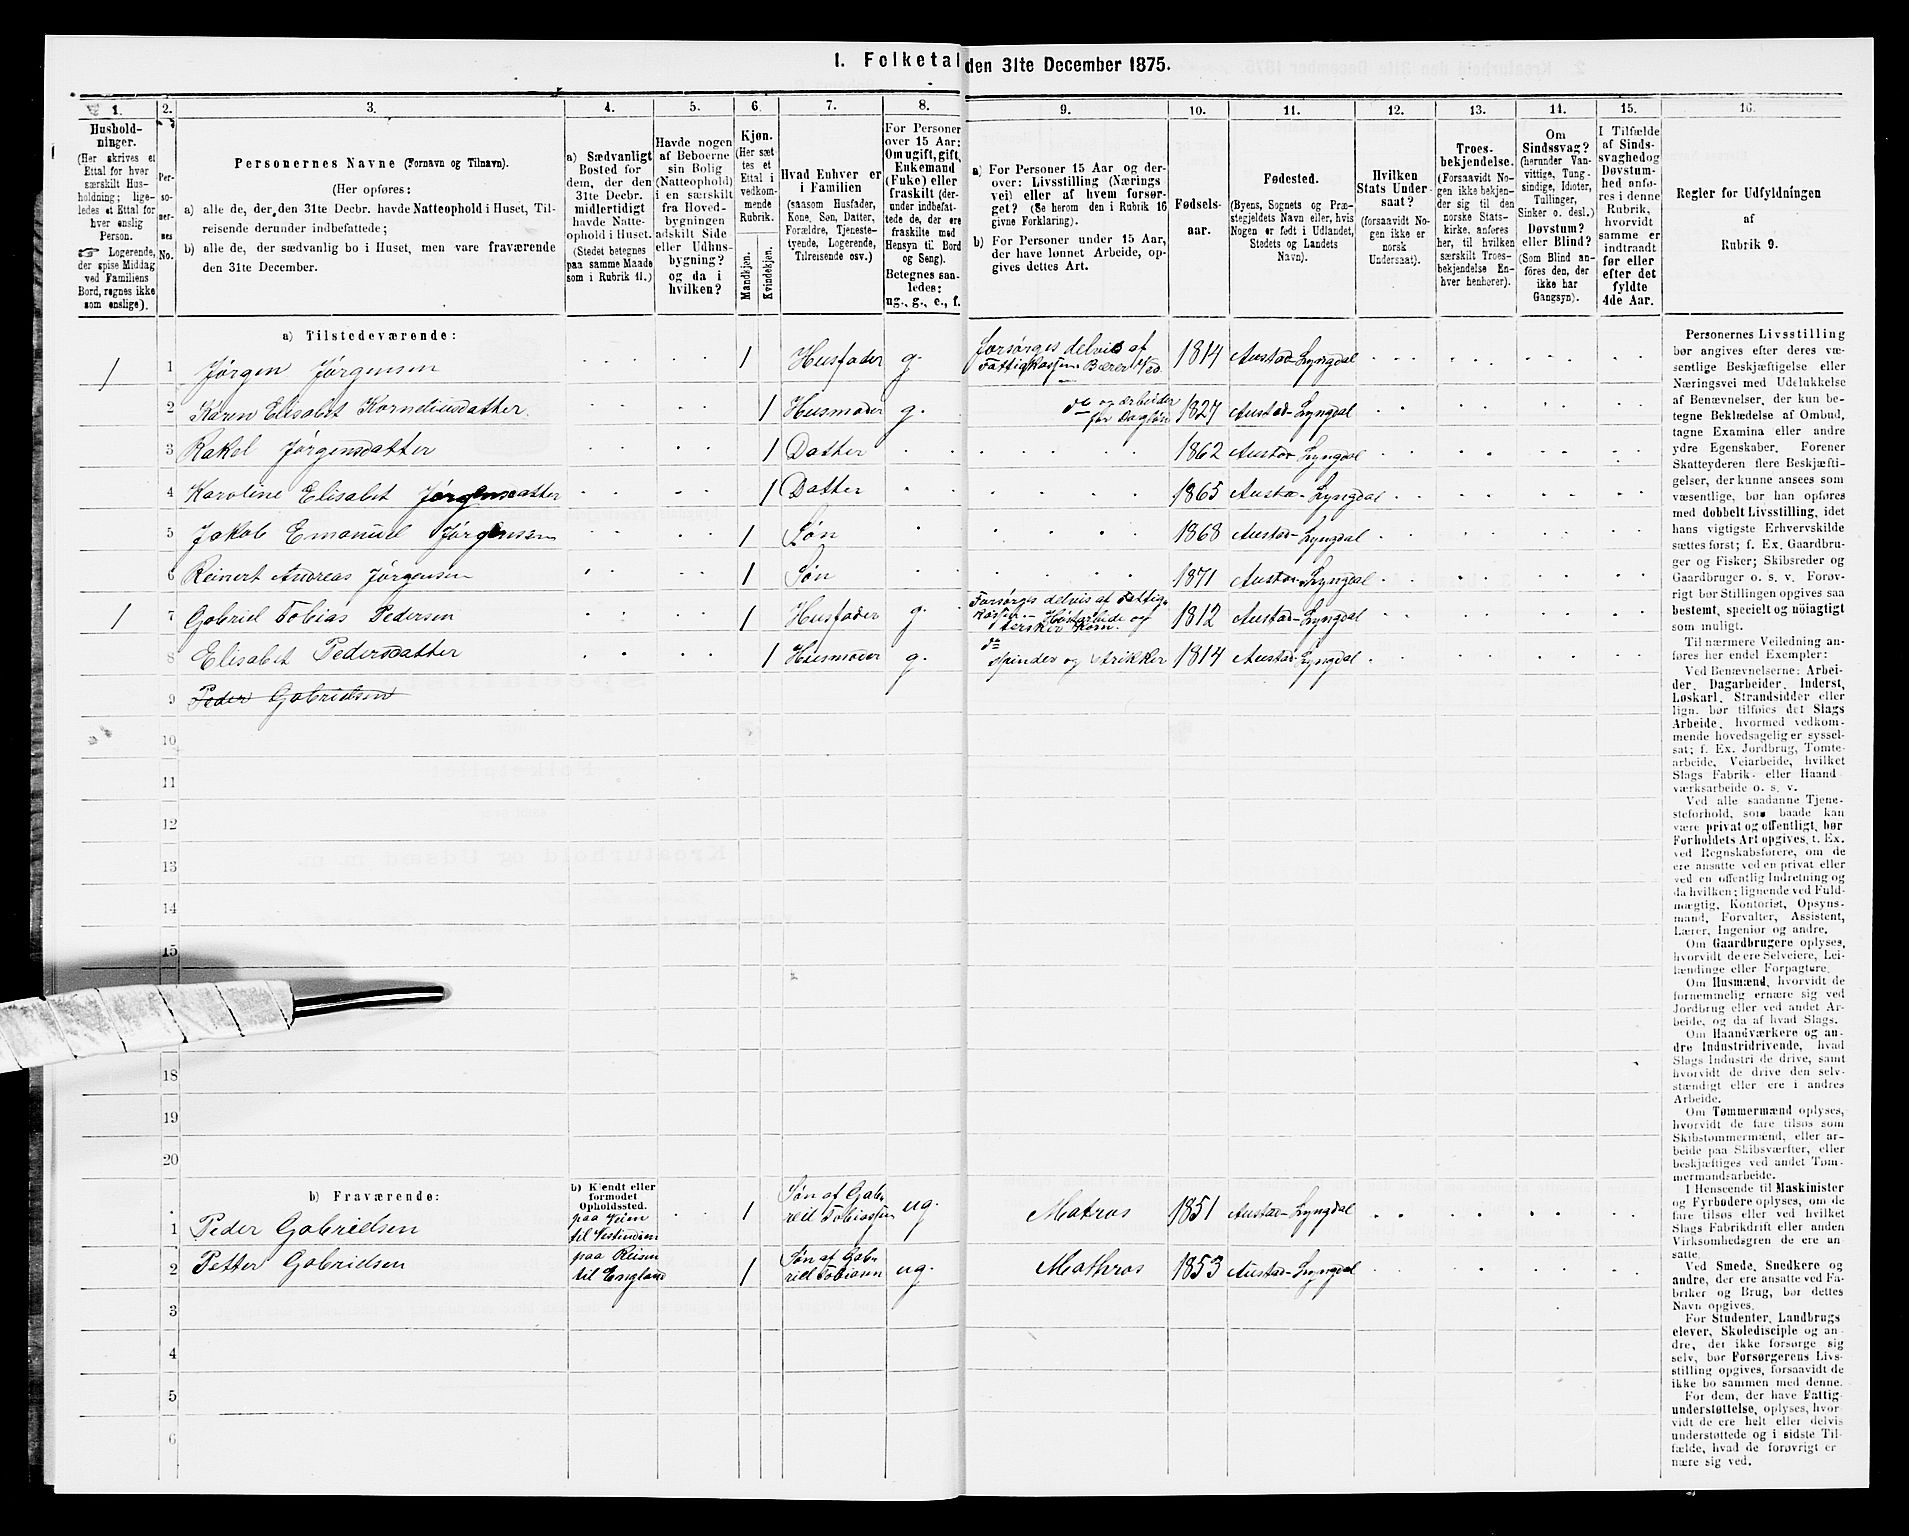 1. Folketal den 31te December 1875.
1. 2. 3. 4. 5. 6. 7. 8. 9. 10. 11. 12. 13. 14. 15. 16.
Hushold-
ninger.
(Her skrives et
Ettal for hver
særskilt Hus-
holdning; lige-
ledes et Ettal for
hver enslig
Person.
☞ Logerende,
der spise Middag
ved Familiens
Bord, regnes ikke
som enslige).
Per-
so-
ner-
nes
No.
Personernes Navne (Fornavn og Tilnavn).
(Her opføres:
a) alle de, der den 31te Decbr. havde Natteophold i Huset, Til-
reisende derunder indbefattede;
b) alle de, der sædvanlig bo i Huset, men vare fraværende
den 31te December.
a) Sædvanligt
Bosted for
dem, der den
31te Decbr.
midlertidigt
havde Natte-
ophold i Huset.
(Stedet betegnes
paa samme Maade
som i Rubrik 11.)
Havde nogen
af Beboerne
sin Bolig
(Natteophold)
i en særskilt
fra Hoved-
bygningen
adskilt Side
eller Udhus-
bygning?
og da i
hvilken?
Kjøn.
(Her sæt
tes et
Ettal i
vedkom-
mende
Rubrik.
Mandkjøn.
Kvindekjøn.
Hvad Enhver er
i Familien
(saasom Husfader,
Kone, Søn, Datter,
Forældre, Tjeneste-
tyende, Logerende,
Tilreisende osv.)
For Personer
over 15 Aar:
Om ugift, gift,
Enkemand
(Fuke) eller
fraskilt (der-
under indbefat-
tede de, der ere
fraskilte med
Hensyn til Bord
og Seng).
Betegnes saa-
ledes:
ug., g., e., f.
a) For Personer 15 Aar og der-
over: Livsstilling (Nærings
vei) eller af hvem forsør-
get? (Se herom den i Rubrik 16
givne Forklaring).
b) For Personer under 15 Aar,
der have lønnet Arbeide, op-
gives dettes Art.
Fødsels-
aar.
Fødested.
(Byens, Sognets og Præ-
stegjeldets Navn eller, hvis
Nogen er født i Udlandet,
Stedets og Landets
Navn).
Hvilken
Stats Under-
saat?
(forsaavidt No-
gen ikke er
norsk
Undersaat).
Troes-
bekjendelse.
(Forsaavidt No-
gen ikke bekjen-
der sig til den
norske Stats-
kirke, anføres
her, til hvilken
særskilt Troes-
bekjendelse En-
hver henhører).
Om
Sindssvag?
(herunder Van-
vittige, Tung-
sindige, Idioter,
Tullinger,
Sinker o. desl.)
Døvstum?
eller Blind?
(Som Blind an-
føres den, der
ikke har
Gangsyn).
I Tilfælde
af Sinds-
svaghed og
Døvstum-
hed anfø-
res i denne
Rubrik,
hvorvidt
samme er
indtraadt
før eller
efter det
fyldte
4de Aar.
Regler for Udfyldningen
af
Rubrik 9.
a) Tilstedeværende:
1 1 Jørgen Jørgensen 1 Husfader g. forsørges delvis af 1814 Austad-Lyngdal
Fattigkassen. Bærer Ved
2 Karen Elisabet Korneliusdatter 1 Husmoder g. do og arbeider 1827 Austad-Lyngdal
for Dagløn
3 Rakel Jørgensdatter 1 Datter 1862 Austad-Lyngdal
4 Karoline Elisabet Jørgensdatter 1 Datter 1865 Austad-Lyngdal
5 Jakob Emanuel Jørgensen 1 Søn 1868 Austad-Lyngdal
6 Reinert Andreas Jørgensen 1 Søn 1871 Austad-Lyngdal
1 7 Gabriel Tobias Pedersen 1 Husfader g. Forsørges delvis af Fattig- 1812 Austad-Lyngdal
kassen. - Høstarbeide og
tersker Korn.
8 Elisabet Pedersdatter 1 Husmoder g. do 1814 Austad-Lyngdal
spinder og strikker
9 Peder Gabrielsen
10
11
12
13
14
15
18
19
20
b) Fraværende:
b) Kjendt eller
formodet
Opholdssted.
1 Peder Gabrielsen paa Veien til Vestindien 1 Søn af Gab- riel Tobiassen ug. Matros 1851 Austad-Lyngdal
2 Petter Gabrielsen paa Reisen til England 1 Søn af Gab- riel Tobiassen ug. Mathros 1853 Austad-Lyngdal
3
4
5
6
Personernes Livsstilling
bør angives efter deres væ-
sentlige Beskjæftigelse eller
Næringsvei med Udelukkelse
af Benævnelser, der kun be-
tegne Beklædelse af Ombud,
tagne Examina eller andre
ydre Egenskaber. Forener
Skatteyderen flere Beskjæfti-
gelser, der kunne ansees som
væsentlige, bør han opføres
med dobbelt Livsstilling, idet
hans vigtigste Erhvervskilde
sættes først; f. Ex. Gaardbru-
ger og Fisker; Skibsreder og
Gaardbruger o. s. v. Forøv-
rigt bør Stillingen opgives saa
bestemt, specielt og nøiagtigt
som muligt.
Til nærmere Veiledning an-
føres her endel Exempler:
Ved Benævnelserne: Arbei-
der, Dagarbeider, Inderst,
Løskarl, Strandsidder eller
lign. bør tilføies det Slags
Arbeide, hvormed vedkom-
mende hovedsagelig er syssel-
sat; f. Ex. Jordbrug, Tomte-
arbeide, Veiarbeide, hvilket
Slags Fabrik- eller Haand
værksarbeide o. s. v.
Ved alle saadanne Tjene-
steforhold, som baade kan
være privat og offentligt, bør
Forholdets Art opgives, t. Ex.
ved Regnskabsførere, om de
ere ansatte ved en privat eller
ved en offentlig Indretning og
da hvilken; lignende ved Fuld-
mægtig, Kontorist, Opsyns-
mand, Forvalter, Assistent,
Lærer, Ingeniør og andre.
Om Gaardbrugere oplyses,
hvorvidt de ere Selveiere, Lei-
lændinge eller Forpagtere.
Om Husmænd, hvorvidt de
fornemmelig ernære sig ved
Jordbrug eller ved andet Ar-
beide, og da af hvad Slags.
Om Haandværkere og an-
dre Industridrivende, hvad
Slags Industri de drive, samt
hvorvidt de drive den selv-
stændigt eller ere i andres
Arbeide.
Om Tømmermænd oplyses,
hvorvidt de fare tilsøs som
Skibstømmermænd, eller ar-
beide paa Skibsværfter, eller
beskjæftiges ved andet Tøm-
mermandsarbeide.
I Henseende til Maskinister
og Fyrbødere oplyses, om de
fare tilsøs eller ved hvilket
Slags Fabrikdrift eller anden
Virksomhedsgren de ere an-
satte.
Ved Smede, Snedkere og
andre, der ere ansatte ved Fa-
briker og Brug, bør dettes
Navn opgives.
For Studenter, Landbrugs
elever, Skoledisciple og an-
dre, der ikke forsørge sig
selv, bør Forsørgerens Livs-
stilling opgives, forsaavidt de
ikke bo sammen med denne.
For dem, der have Fattig
understøttelse, oplyses, hvor-
vidt de ere helt eller delvis
understøttede og i sidste Til-
fælde, hvad de forøvrigt er
nære sig ved.